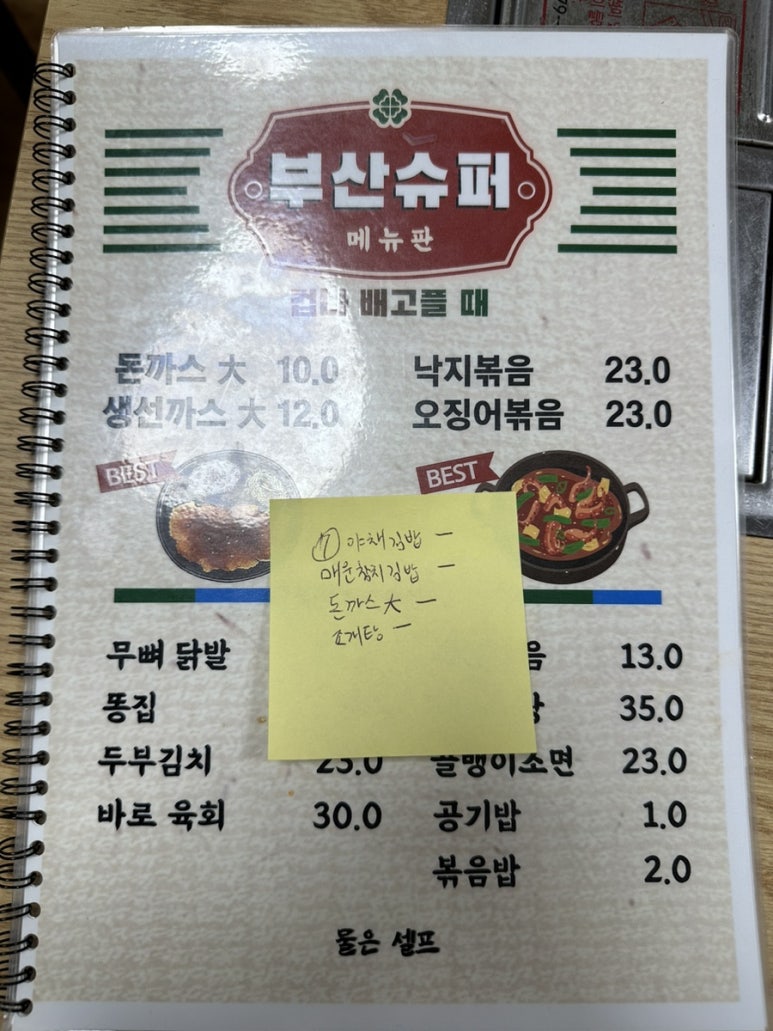 부산슈퍼
메뉴판
겁나 배고플 때
돈까스 大 10.0
생선까스 大 12.0
낙지볶음 23.0
오징어볶음 23.0
BEST
BEST
⑦ 야채김밥 一
매운참치김밥 一
돈까스 大 一
조개탕 一
무뼈 닭발
똥집
두부김치 23.0
바로 육회 30.0
음 13.0
탕 35.0
골뱅이소면 23.0
공기밥 1.0
볶음밥 2.0
물은 셀프